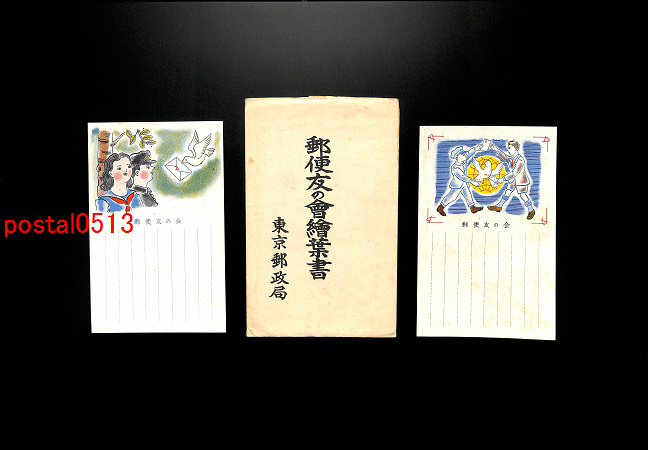 郵便友の会
postal0513
郵便友の會繪葉書
東京郵政局
郵便友の会